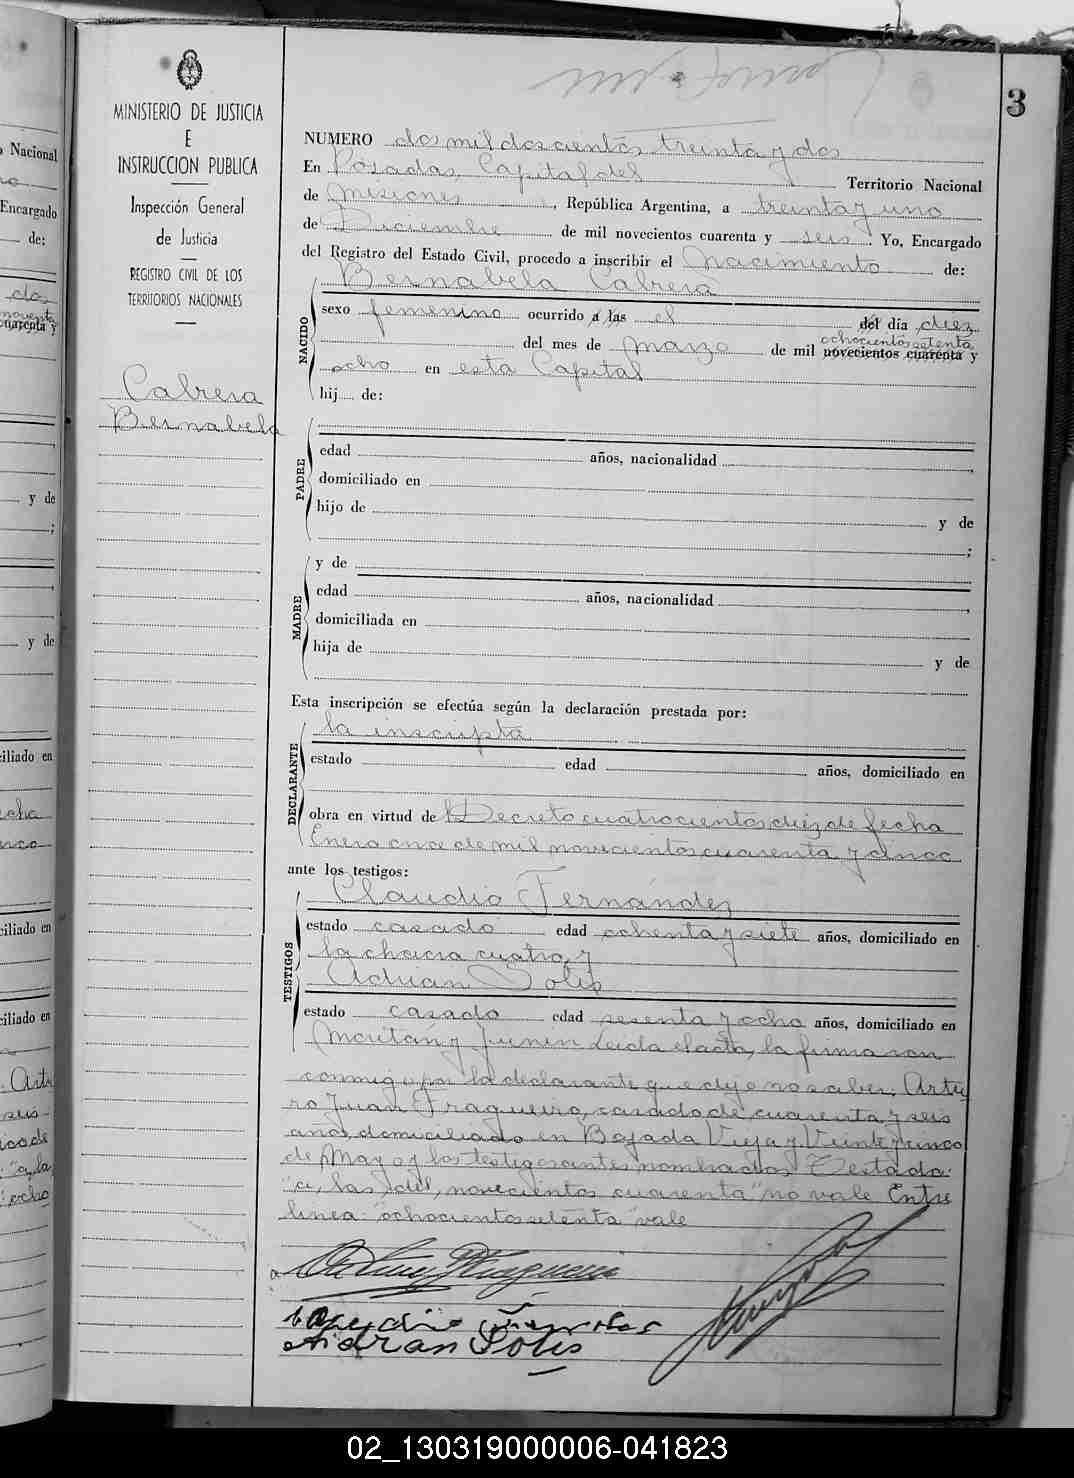 3
MINISTERIO DE JUSTICIA
E
INSTRUCCION PUBLICA
Inspección General
de Justicia
REGISTRO CIVIL DE LOS
TERRITORIOS NACIONALES
Cabrera
Bernabela
NUMERO dos mil doscientos treinta y dos
En Posadas, Capital del Territorio Nacional
de Misiones, República Argentina, a treinta y uno
de Diciembre de mil novecientos cuarenta y seis. Yo, Encargado
del Registro del Estado Civil, procedo a inscribir el Nacimiento de:
NACIDO
Bernabela Cabrera
sexo femenino ocurrido a las el del día diez
ochocientos setenta
del mes de marzo de mil novecientos cuarenta y
ocho en esta Capital
hij de:
PADRE
edad años, nacionalidad
domiciliado en
hijo de y de
;
MADRE
y de
edad años, nacionalidad
domiciliada en
hija de y de
Esta inscripción se efectúa según la declaración prestada por:
DECLARANTE
la inscripta
estado edad años, domiciliado en
obra en virtud de Decreto cuatrocientos diez de fecha
Enero once de mil novecientos cuarenta y cinco
ante los testigos:
TESTIGOS
Claudio Fernández
estado casado edad ochenta y siete años, domiciliado en
la chacra cuatro, y
Adrian Solis
estado casado edad sesenta y ocho años, domiciliado en
y Junin Leida el acta, la firma con
conmigo por la declarante que dijo no saber: Artu
ro Juan Fragueiro, casado de cuarenta y seis
años, domiciliado en Bajada Vieja y Veinticinco
de Mayo y los testigos antes nombrados Testado:
"a, las, del, novecientos cuarenta" no vale Entre
linea: "ochocientos setenta" vale
Adrian Solis
o Nacional
Encargado
de:
dos
noventa
cuarenta y
y de
;
y de
ciliado en
echa
ciliado en
ciliado en
Artu
seis
"a, la
ocho
02_130319000006-041823